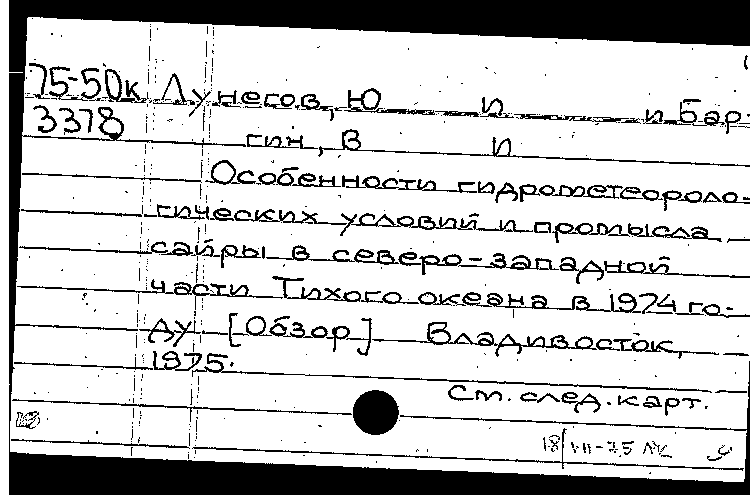 75-50к Лунегов, Ю и и Бар-
3378 гин, В и
Особенности гидрометеороло-
гических условий и промысла
сайры в северо-западной
части Тихого океана в 1974 го-
ду [Обзор] Владивосток,
1975.
См. след. карт.
18/VII-75